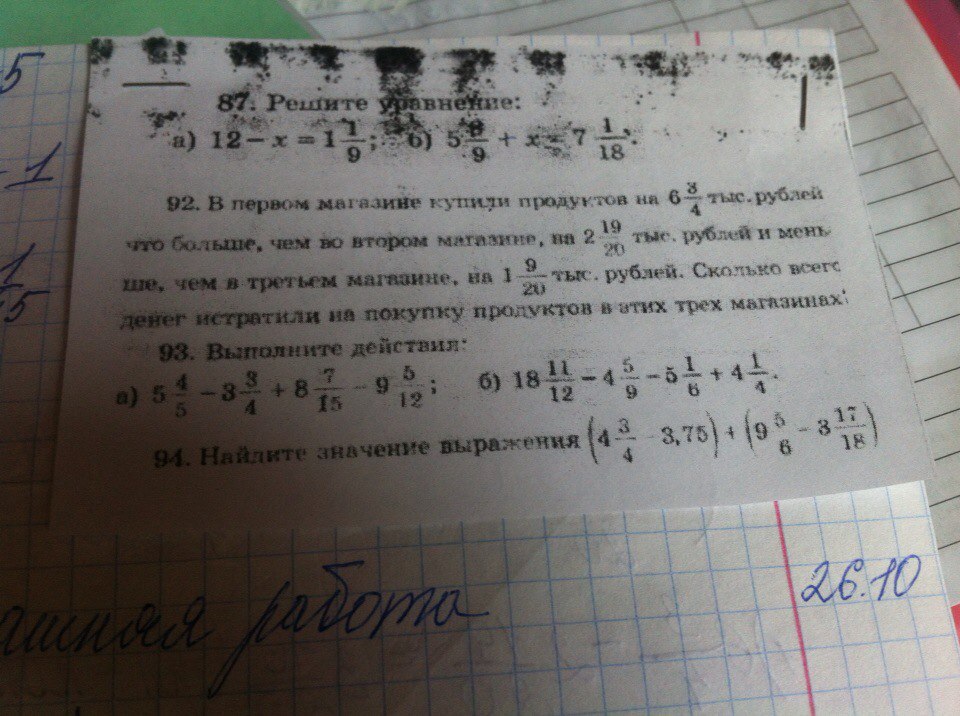 5
1
1
5
87. Решите уравнение:
а) 12 − x = 1 1/9; б) 5 /9 + x = 7 1/18.
92. В первом магазине купили продуктов на 6 3/4 тыс. рублей
что больше, чем во втором магазине, на 2 19/20 тыс. рублей и мень
ше, чем в третьем магазине, на 1 9/20 тыс. рублей. Сколько всего
денег истратили на покупку продуктов в этих трех магазинах?
93. Выполните действия:
а) 5 4/5 − 3 3/4 + 8 7/15 − 9 5/12; б) 18 11/12 − 4 5/9 − 5 1/6 + 4 1/4.
94. Найдите значение выражения (4 3/4 − 3,75) + (9 5/6 − 3 17/18)
ашная работа 26.10